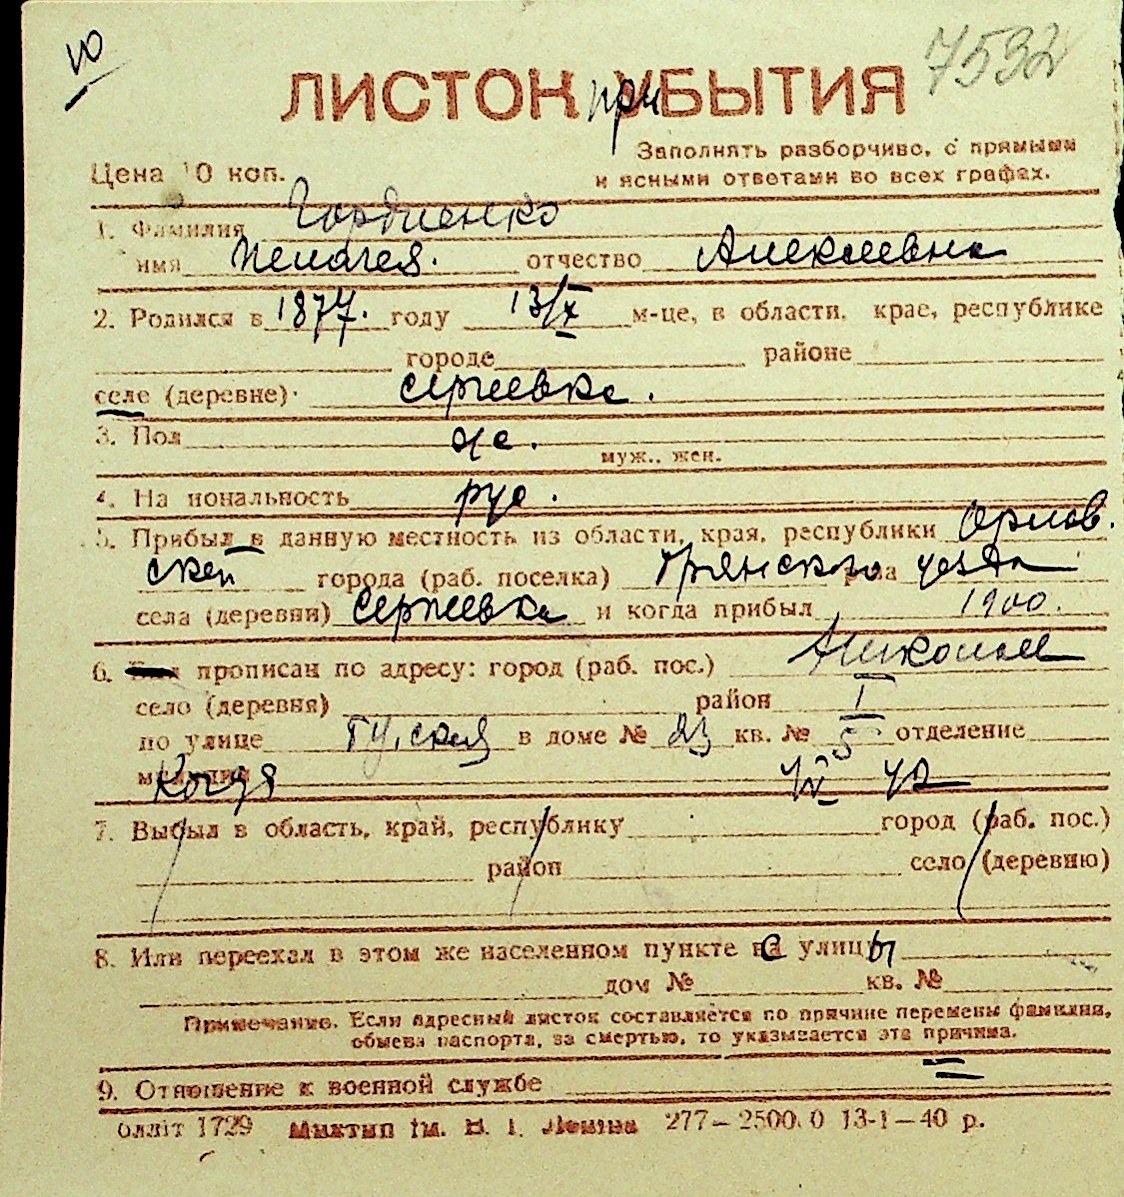 10
7532
ЛИСТОК при УБЫТИЯ
Заполнять разборчиво, с прямыми
Цена 10 коп.
и ясными ответами во всех графах.
1. Фамилия Гордиенко
имя Пелагея. отчество Алексеевна
2. Родился в 1877. году 13/X м-це, в области, крае, республике
городе районе
село (деревне) Сергеевка.
3. Пол же.
муж., жен.
4. На иональность рус.
5. Прибыл в данную местность из области, края, республики Орлов.
ской города (раб. поселка) Брянского р-на уезда
села (деревни) Сергеевка и когда прибыл 1900.
6. прописан по адресу: город (раб. пос.) Николаев
село (деревня) район I
по улице ская в доме № 23 кв. № 5 отделение
милиции Когда IV 42
7. Выбыл в область, край, республику город (раб. пос.)
район село (деревню)
8. Или переехал в этом же населенном пункте с улицы
дом № кв. №
Примечание. Если адресный листок составляется по причине перемены фамилии,
обмена паспорта, за смертью, то указывается эта причина.
9. Отношение к военной службе =
олліт 1729 Миктип ім. В. І. Леніна 277—2500.0 13-1—40 р.